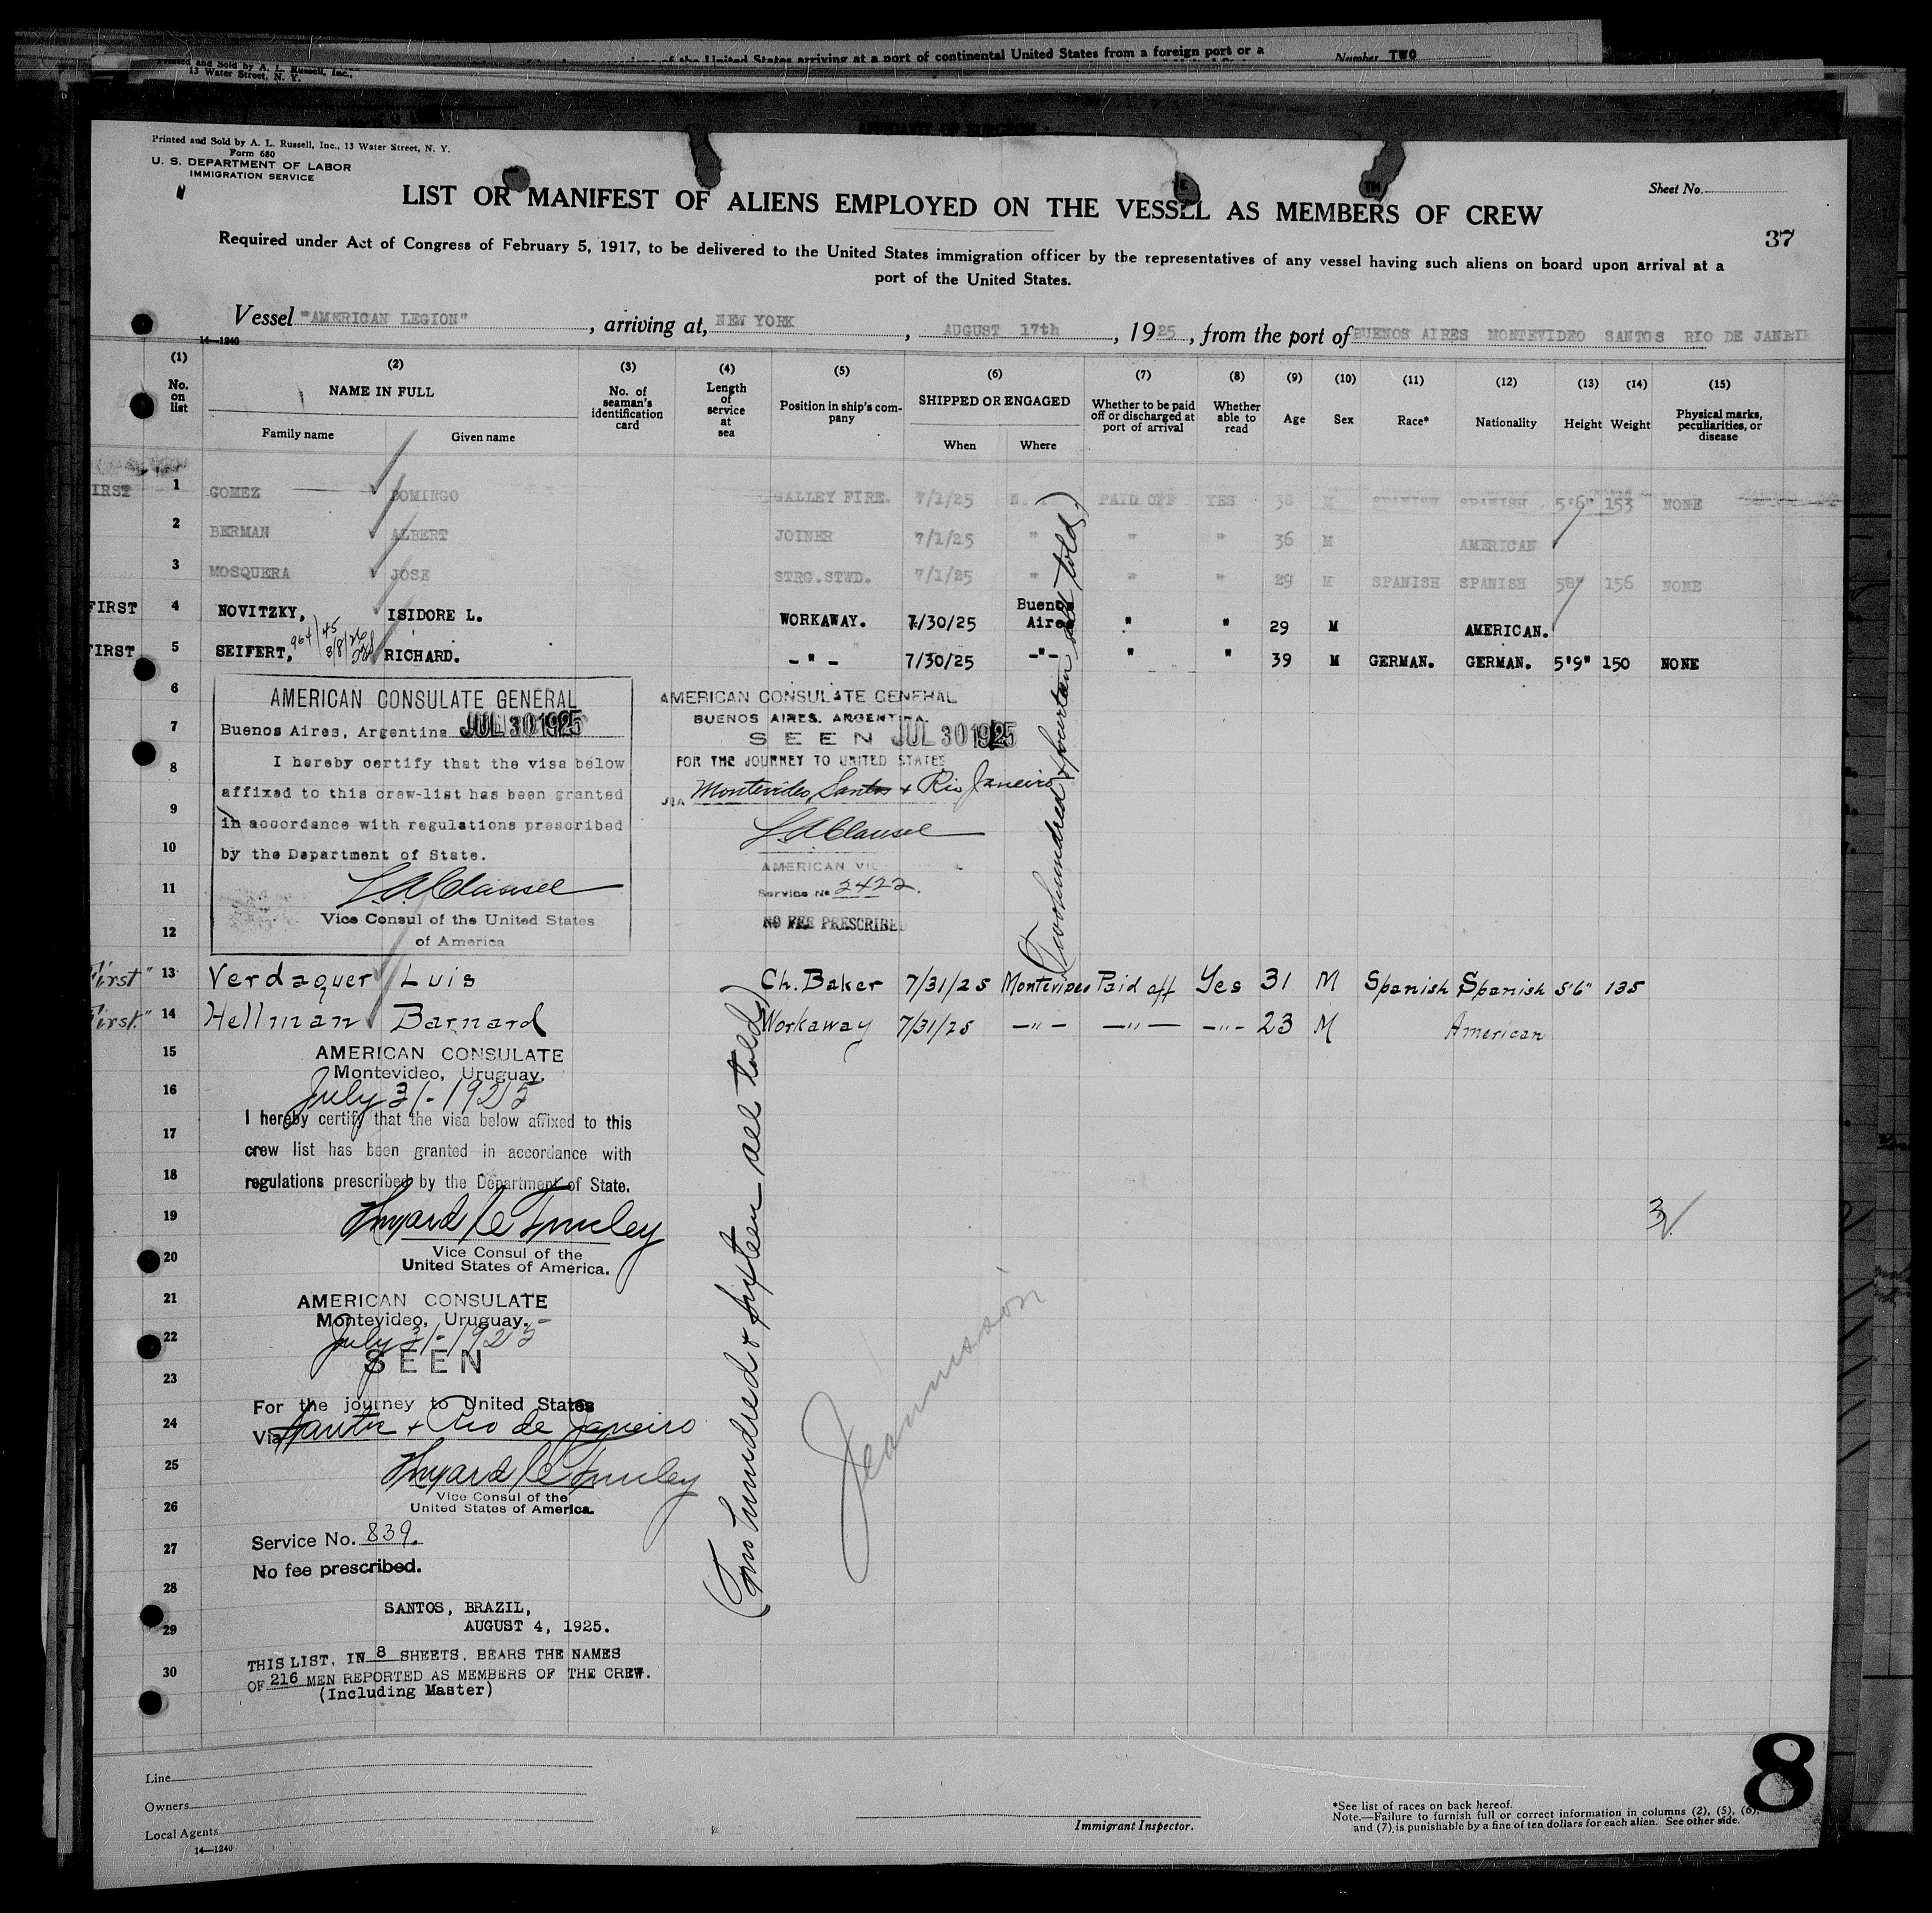 of the United States arriving at a port of continental United States from a foreign port or a Number TWO
Printed and Sold by A. L. Russell, Inc.,
13 Water Street, N. Y.
AFFIDAVIT OF SURGEON
Printed and Sold by A. L. Russell, Inc., 13 Water Street, N. Y.
Form 680
U. S. DEPARTMENT OF LABOR
IMMIGRATION SERVICE
Sheet No.
LIST OR MANIFEST OF ALIENS EMPLOYED ON THE VESSEL AS MEMBERS OF CREW
37
Required under Act of Congress of February 5, 1917, to be delivered to the United States immigration officer by the representatives of any vessel having such aliens on board upon arrival at a
port of the United States.
Vessel "AMERICAN LEGION", arriving at, NEW YORK, AUGUST 17th, 1925, from the port of BUENOS AIRES MONTEVIDEO SANTOS RIO DE JANEIR
14—1240
(1) (2) (3) (4) (5) (6) (7) (8) (9) (10) (11) (12) (13) (14) (15)
No. on list NAME IN FULL No. of seaman's identification card Length of service at sea Position in ship's company SHIPPED OR ENGAGED Whether to be paid off or discharged at port of arrival Whether able to read Age Sex Race* Nationality Height Weight Physical marks, peculiarities, or disease
Family name Given name When Where
IRST 1 GOMEZ DOMINGO GALLEY FIRE. 7/1/25 N. PAID OFF YES 38 M SPANISH SPANISH 5'6" 153 NONE
2 BERMAN ALBERT JOINER 7/1/25 " " " 36 M AMERICAN
3 MOSQUERA JOSE STRG.STWD. 7/1/25 " " " 29 M SPANISH SPANISH 58" 156 NONE
FIRST 4 NOVITZKY, ISIDORE L. WORKAWAY. 7/30/25 Buenos Aires " " 29 M AMERICAN.
FIRST 5 SEIFERT, RICHARD. - " - 7/30/25 -"- " " 39 M GERMAN. GERMAN. 5'9" 150 NONE
964/45
3/8/26
6
7
8
9
10
11
12
AMERICAN CONSULATE GENERAL
Buenos Aires, Argentina JUL 30 1925
I hereby certify that the visa below
affixed to this crew-list has been granted
in accordance with regulations prescribed
by the Department of State.
Vice Consul of the United States
of America
AMERICAN CONSULATE GENERAL
BUENOS AIRES, ARGENTINA.
SEEN JUL 30 1925
FOR THE JOURNEY TO UNITED STATES
VIA Montevideo, Santos + Rio Janeiro
AMERICAN VIC
Service No 2422.
NO FEE PRESCRIBED
(Two hundred & fourteen all told)
First" 13 Verdaguer Luis Ch. Baker 7/31/25 Montevideo Paid off Yes 31 M Spanish Spanish 5'6" 135
First" 14 Hellman Barnard Workaway 7/31/25 -"- -"- -"- 23 M American
15
16
17
18
19
20
AMERICAN CONSULATE
Montevideo, Uruguay.
July 31-1925
I hereby certify that the visa below affixed to this
crew list has been granted in accordance with
regulations prescribed by the Department of State.
Vice Consul of the
United States of America.
3
21
22
23
24
25
26
27
28
29
30
AMERICAN CONSULATE
Montevideo, Uruguay.
July 31-1925
SEEN
For the journey to United States
Via Santos + Rio de Janeiro
Vice Consul of the
United States of America.
Service No. 839.
No fee prescribed.
(Two hundred & sixteen all told)
SANTOS, BRAZIL,
AUGUST 4, 1925.
THIS LIST, IN 8 SHEETS, BEARS THE NAMES
OF 216 MEN REPORTED AS MEMBERS OF THE CREW.
(Including Master)
Line
Owners
Local Agents
14—1240
Immigrant Inspector.
*See list of races on back hereof.
Note.—Failure to furnish full or correct information in columns (2), (5), (6),
and (7) is punishable by a fine of ten dollars for each alien. See other side.
8